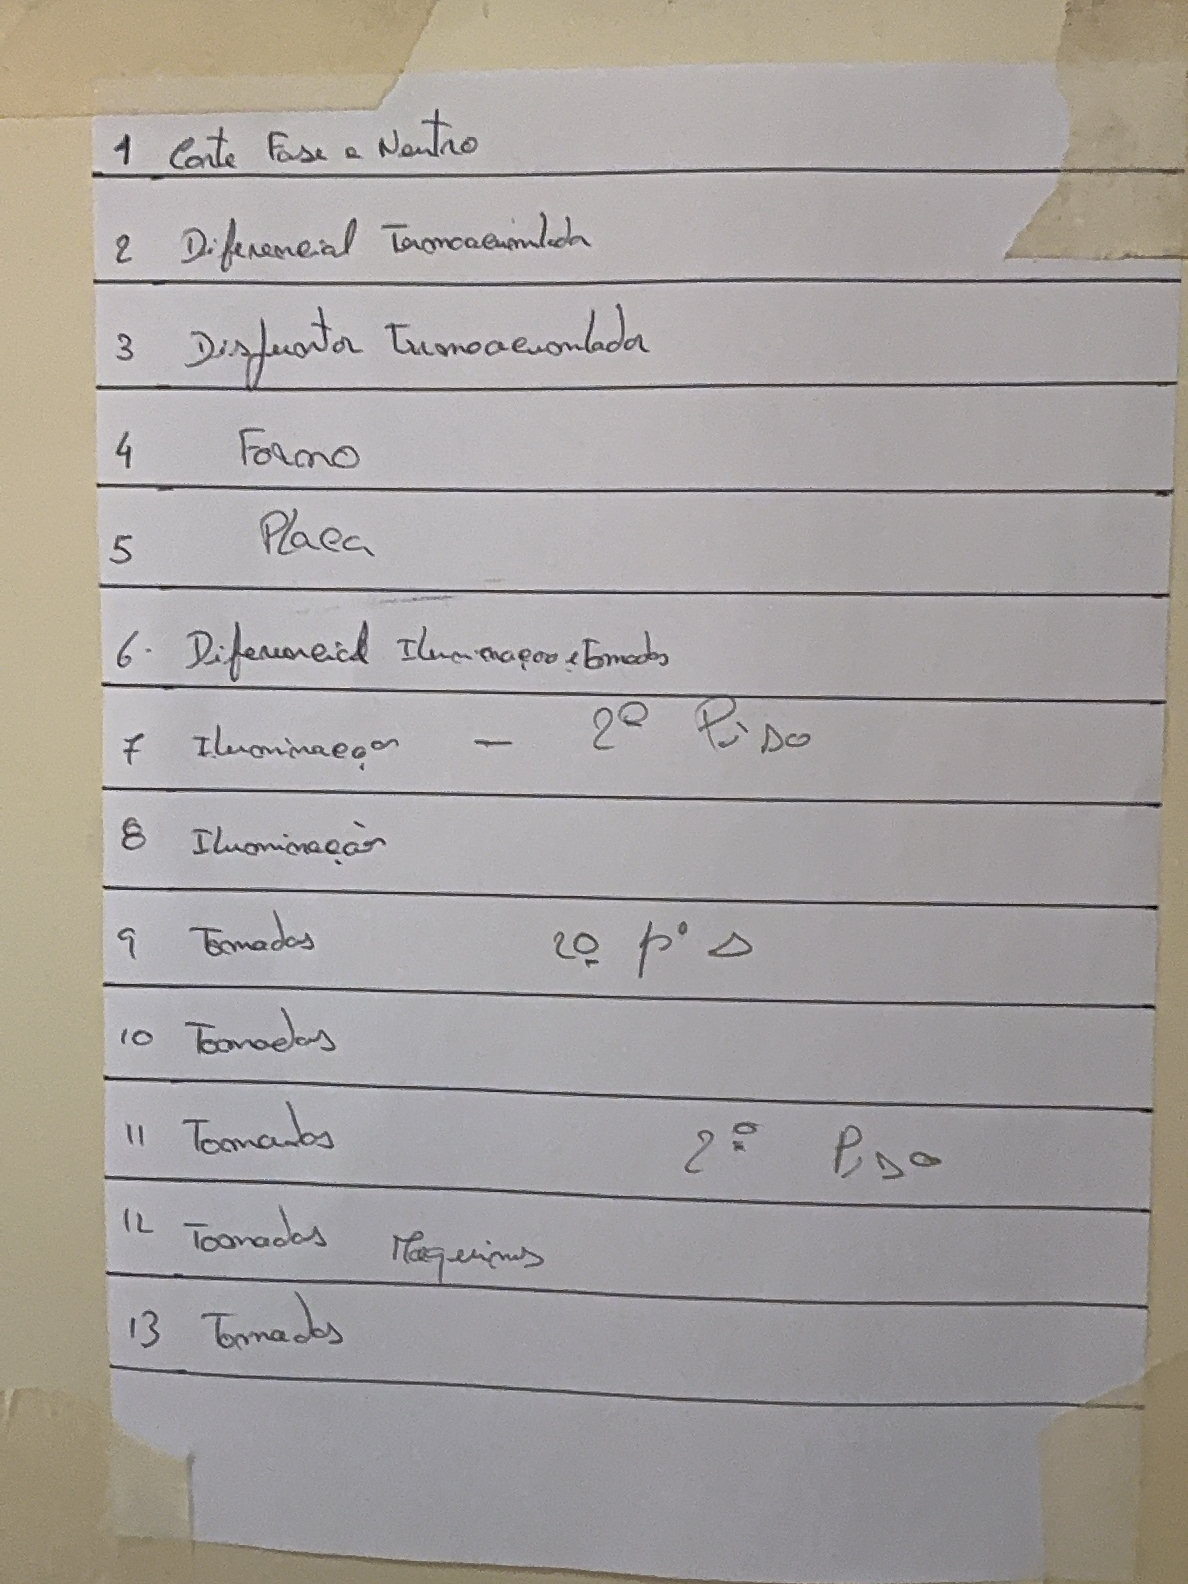 1 Corte Fase e Neutro
2 Diferencial Termoacumulador
3 Disjuntor Termoacumulador
4 Forno
5 Placa
6. Diferencial Iluminaçao e Tomadas
7 Iluminaçao - 2º Piso
8 Iluminação
9 Tomadas 2º piso
10 Tomadas
11 Tomadas 2º Piso
12 Tomadas Maquinas
13 Tomadas